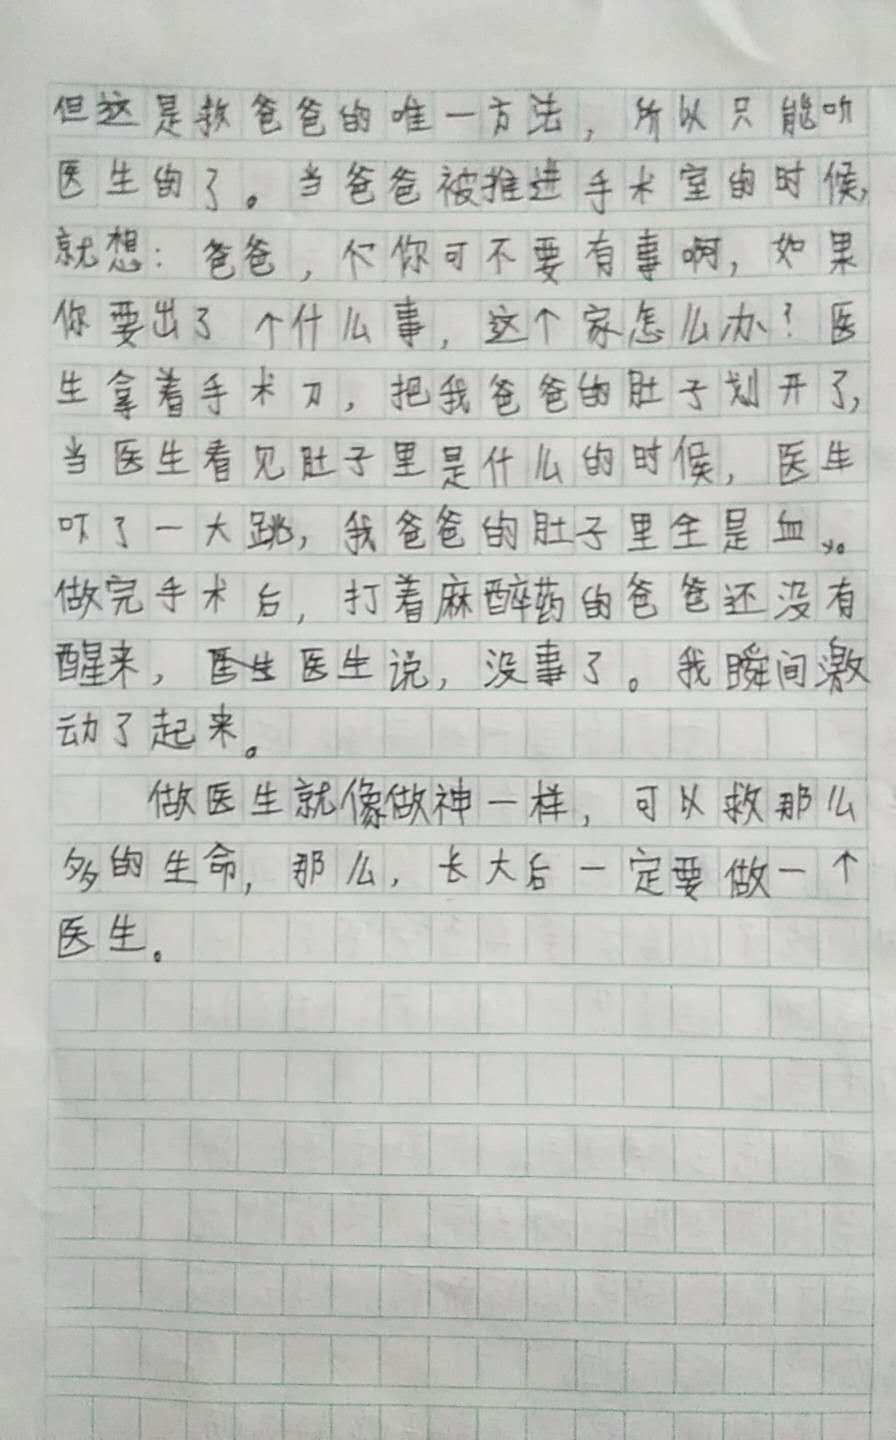 但这是救爸爸的唯一方法，所以只能听
医生的了。当爸爸被推进手术室的时候，
就想：爸爸，你可不要有事啊，如果
你要出了个什么事，这个家怎么办？医
生拿着手术刀，把我爸爸的肚子划开了，
当医生看见肚子里是什么的时候，医生
吓了一大跳，我爸爸的肚子里全是血。
做完手术后，打着麻醉药的爸爸还没有
醒来，医生说，没事了。我瞬间激
动了起来。
做医生就像做神一样，可以救那么
多的生命，那么，长大后一定要做一个
医生。